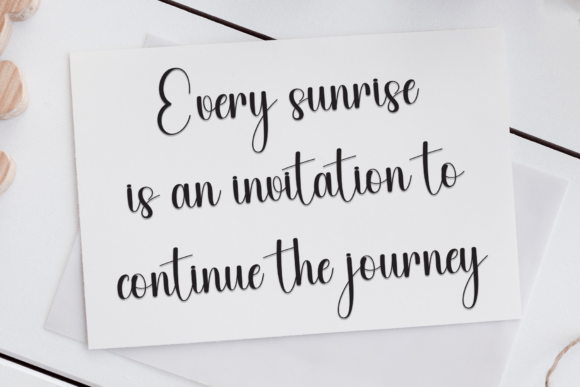 Every sunrise
is an invitation to
continue the journey